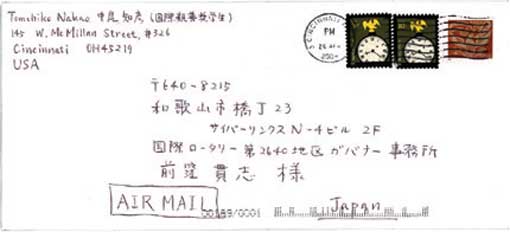 Tomohiko Nakao 中尾知彦(国際親善奨学生)
145 W. McMillan Street, #326
Cincinnati OH45219
USA
CINCINNATI
PM
〒640-8215
和歌山市橋丁23
サイバーリンクスN-4ビル 2F
国際ロータリー第2640地区ガバナー事務所
前窪貫志 様
AIR MAIL
Japan